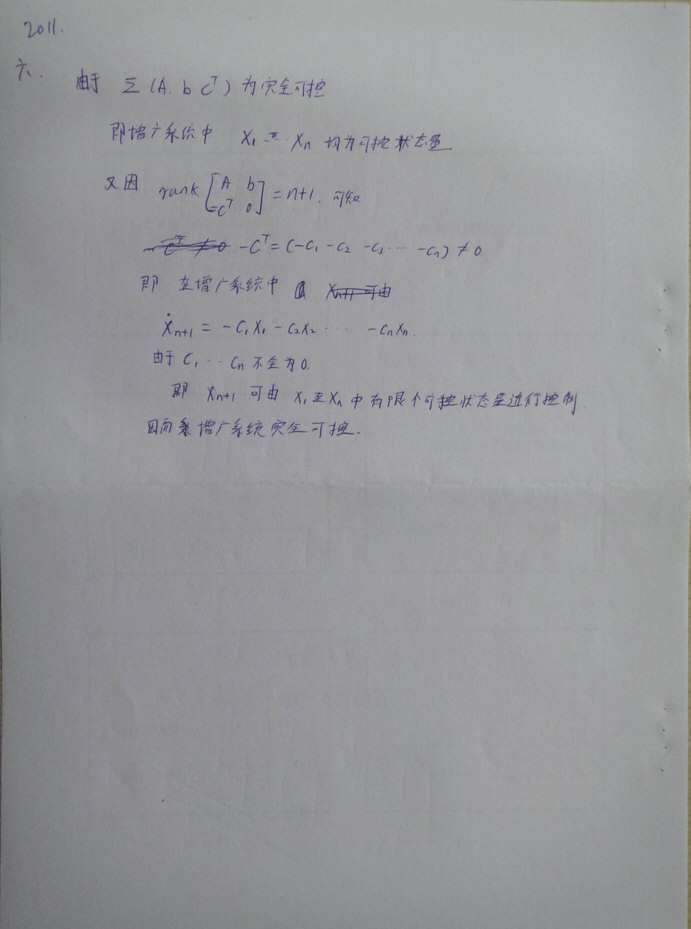 2011.
六.
由于 Σ(A. b c^T) 为完全可控
即增广系统中 x₁ 至 xₙ 均为可控状态量
又因 rank [A b; -c^T 0] = n+1. 可知
-c^T = (-c₁ -c₂ -c₃ ⋯ -cₙ) ≠ 0.
即 在增广系统中
ẋₙ₊₁ = -c₁x₁ -c₂x₂ ⋯ -cₙxₙ.
由于 c₁ ⋯ cₙ 不全为0.
即 xₙ₊₁ 可由 x₁至xₙ 中有限个可控状态量进行控制
因而 增广系统完全可控.